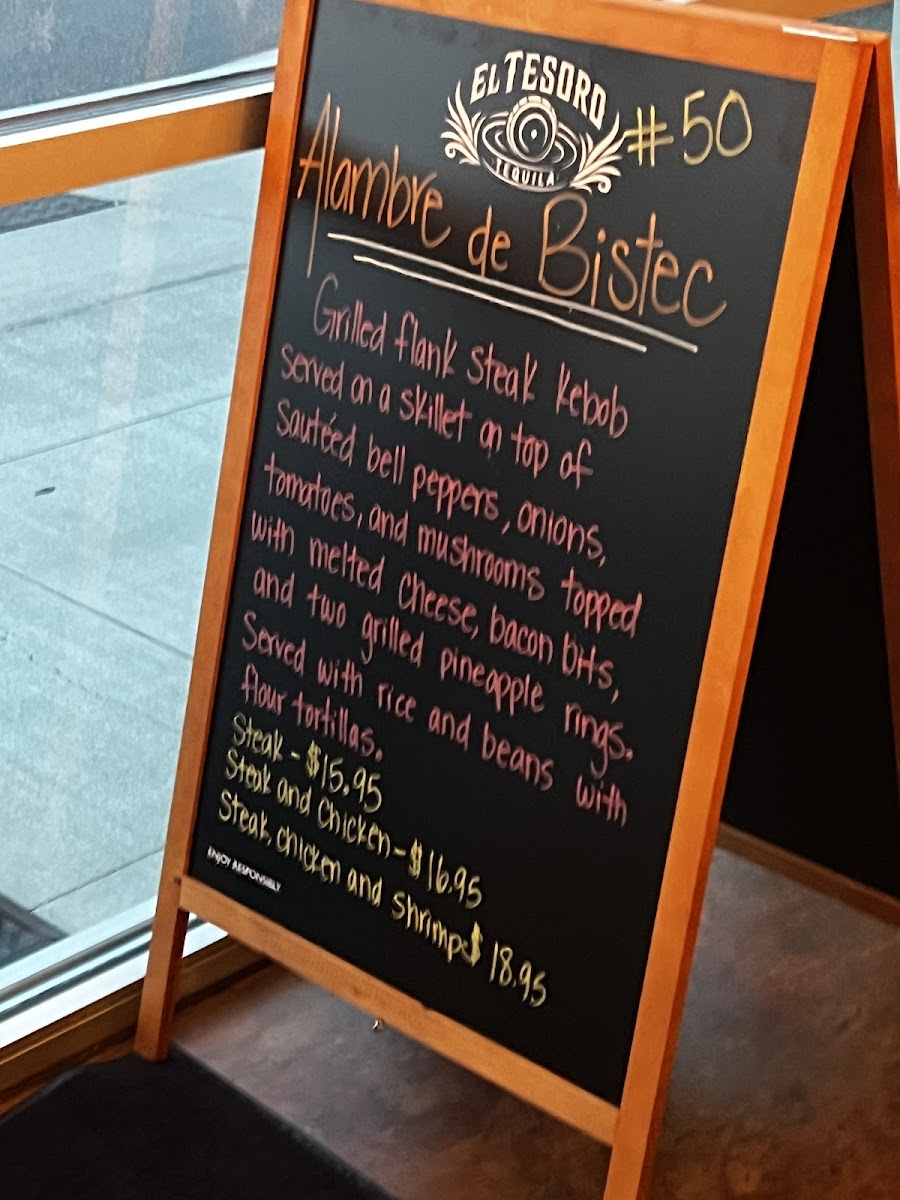 EL TESORO
TEQUILA
#50
Alambre de Bistec
Grilled flank steak kebob
served on a skillet on top of
Sautéed bell peppers, onions,
tomatoes, and mushrooms topped
with melted cheese, bacon bits,
and two grilled pineapple rings.
Served with rice and beans with
flour tortillas.
Steak - $15.95
Steak and Chicken - $16.95
Steak, chicken and shrimp $18.95
ENJOY RESPONSIBLY